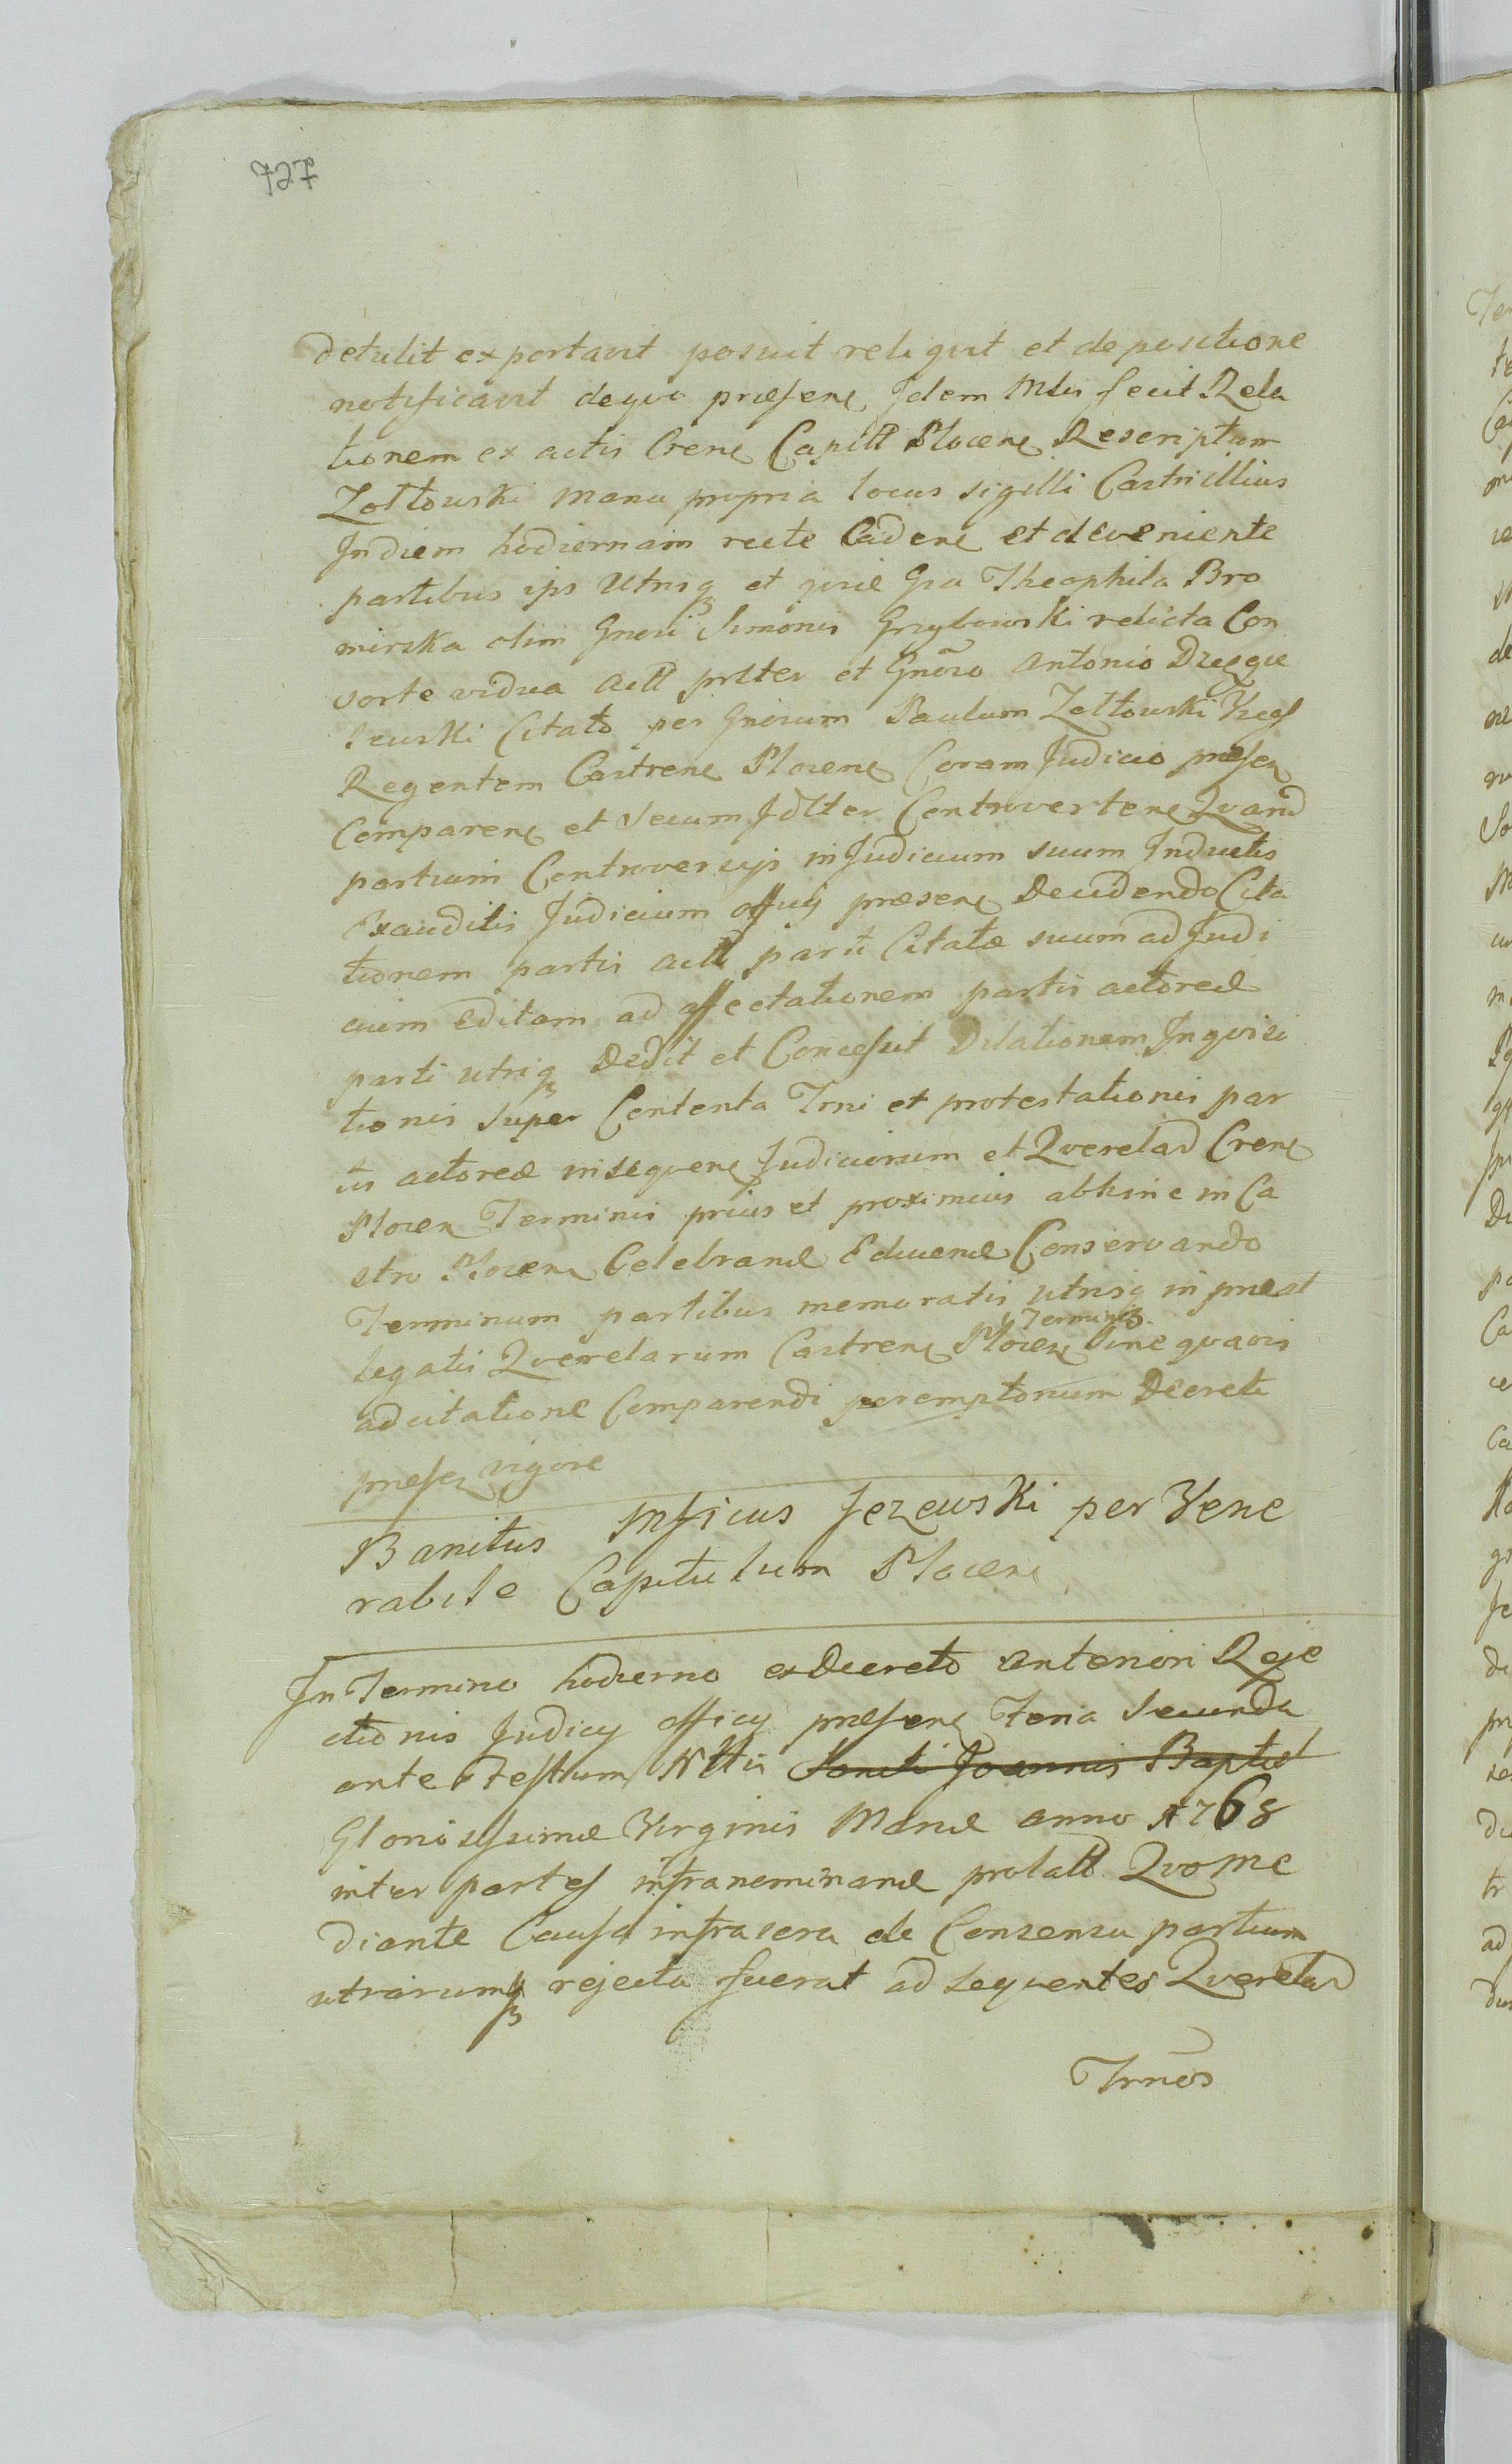 727
detulit exportavit posuit reliqvit et depositione
notificavit deqvo præsene Idem Mlis fecit Rela
tionem ex actis Crene Capitl Plocene Rescriptum
Zołtowski manu propria locus sigilli Castr illius
In diem hodiernam recte Cadene et deveniente
partibus ips Utrisq et qvie Gsa Theophila Bro
mirska olim Gnosi Simonis Grzybowski relicta Con
sorte vidua actl prlter et Gnõso Antonio
lewski Citato per Gnosum Paulum Zołtowski Vices
Regentem Castrene Plocene Coram Judicio præsen
Comparene et secum Jdlter Controvertene Qvarud
partium Controversijs in Judicium suum Inductis
Exauditis Judicium officij præsene Decidendo Cita
tionem partis actl parti Citatæ suum ad Judi
cium Editam ad affectationem partis actoreæ
parti utriq Dedit et Concessit Dilationem Inqvisi
tionis super Contenta Trni et protestationis par
tis actoreæ insequene Judiciorum et Qverelar Crene
Plocen Terminis prius et proximius abhinc in Ca
stro Plocene Celebrand Educend Conservando
Terminum partibus memoratis utrisq in præal
legatis Qverelarum Castrene Plocen Terminis sine qvavis
adcitatione Comparendi peremptorium Decreti
præsen vigore
Banitus Mficus Jezewski per Vene
rabile Capitulum Plocen
In Termino hodierno ex Decreto anteriori Reje
ctionis Judicij officij præsene Feria Secunda
ante Festum Nttis Sancti Joannis Baptist
Gloriosissimæ Virginis Mariæ anno 1768
inter partes infranominand prolatl Qvo me
diante Causa infrascra de Consensu partium
utrarumq rejecta fuerat ad sequentes Qverelar
Trnos